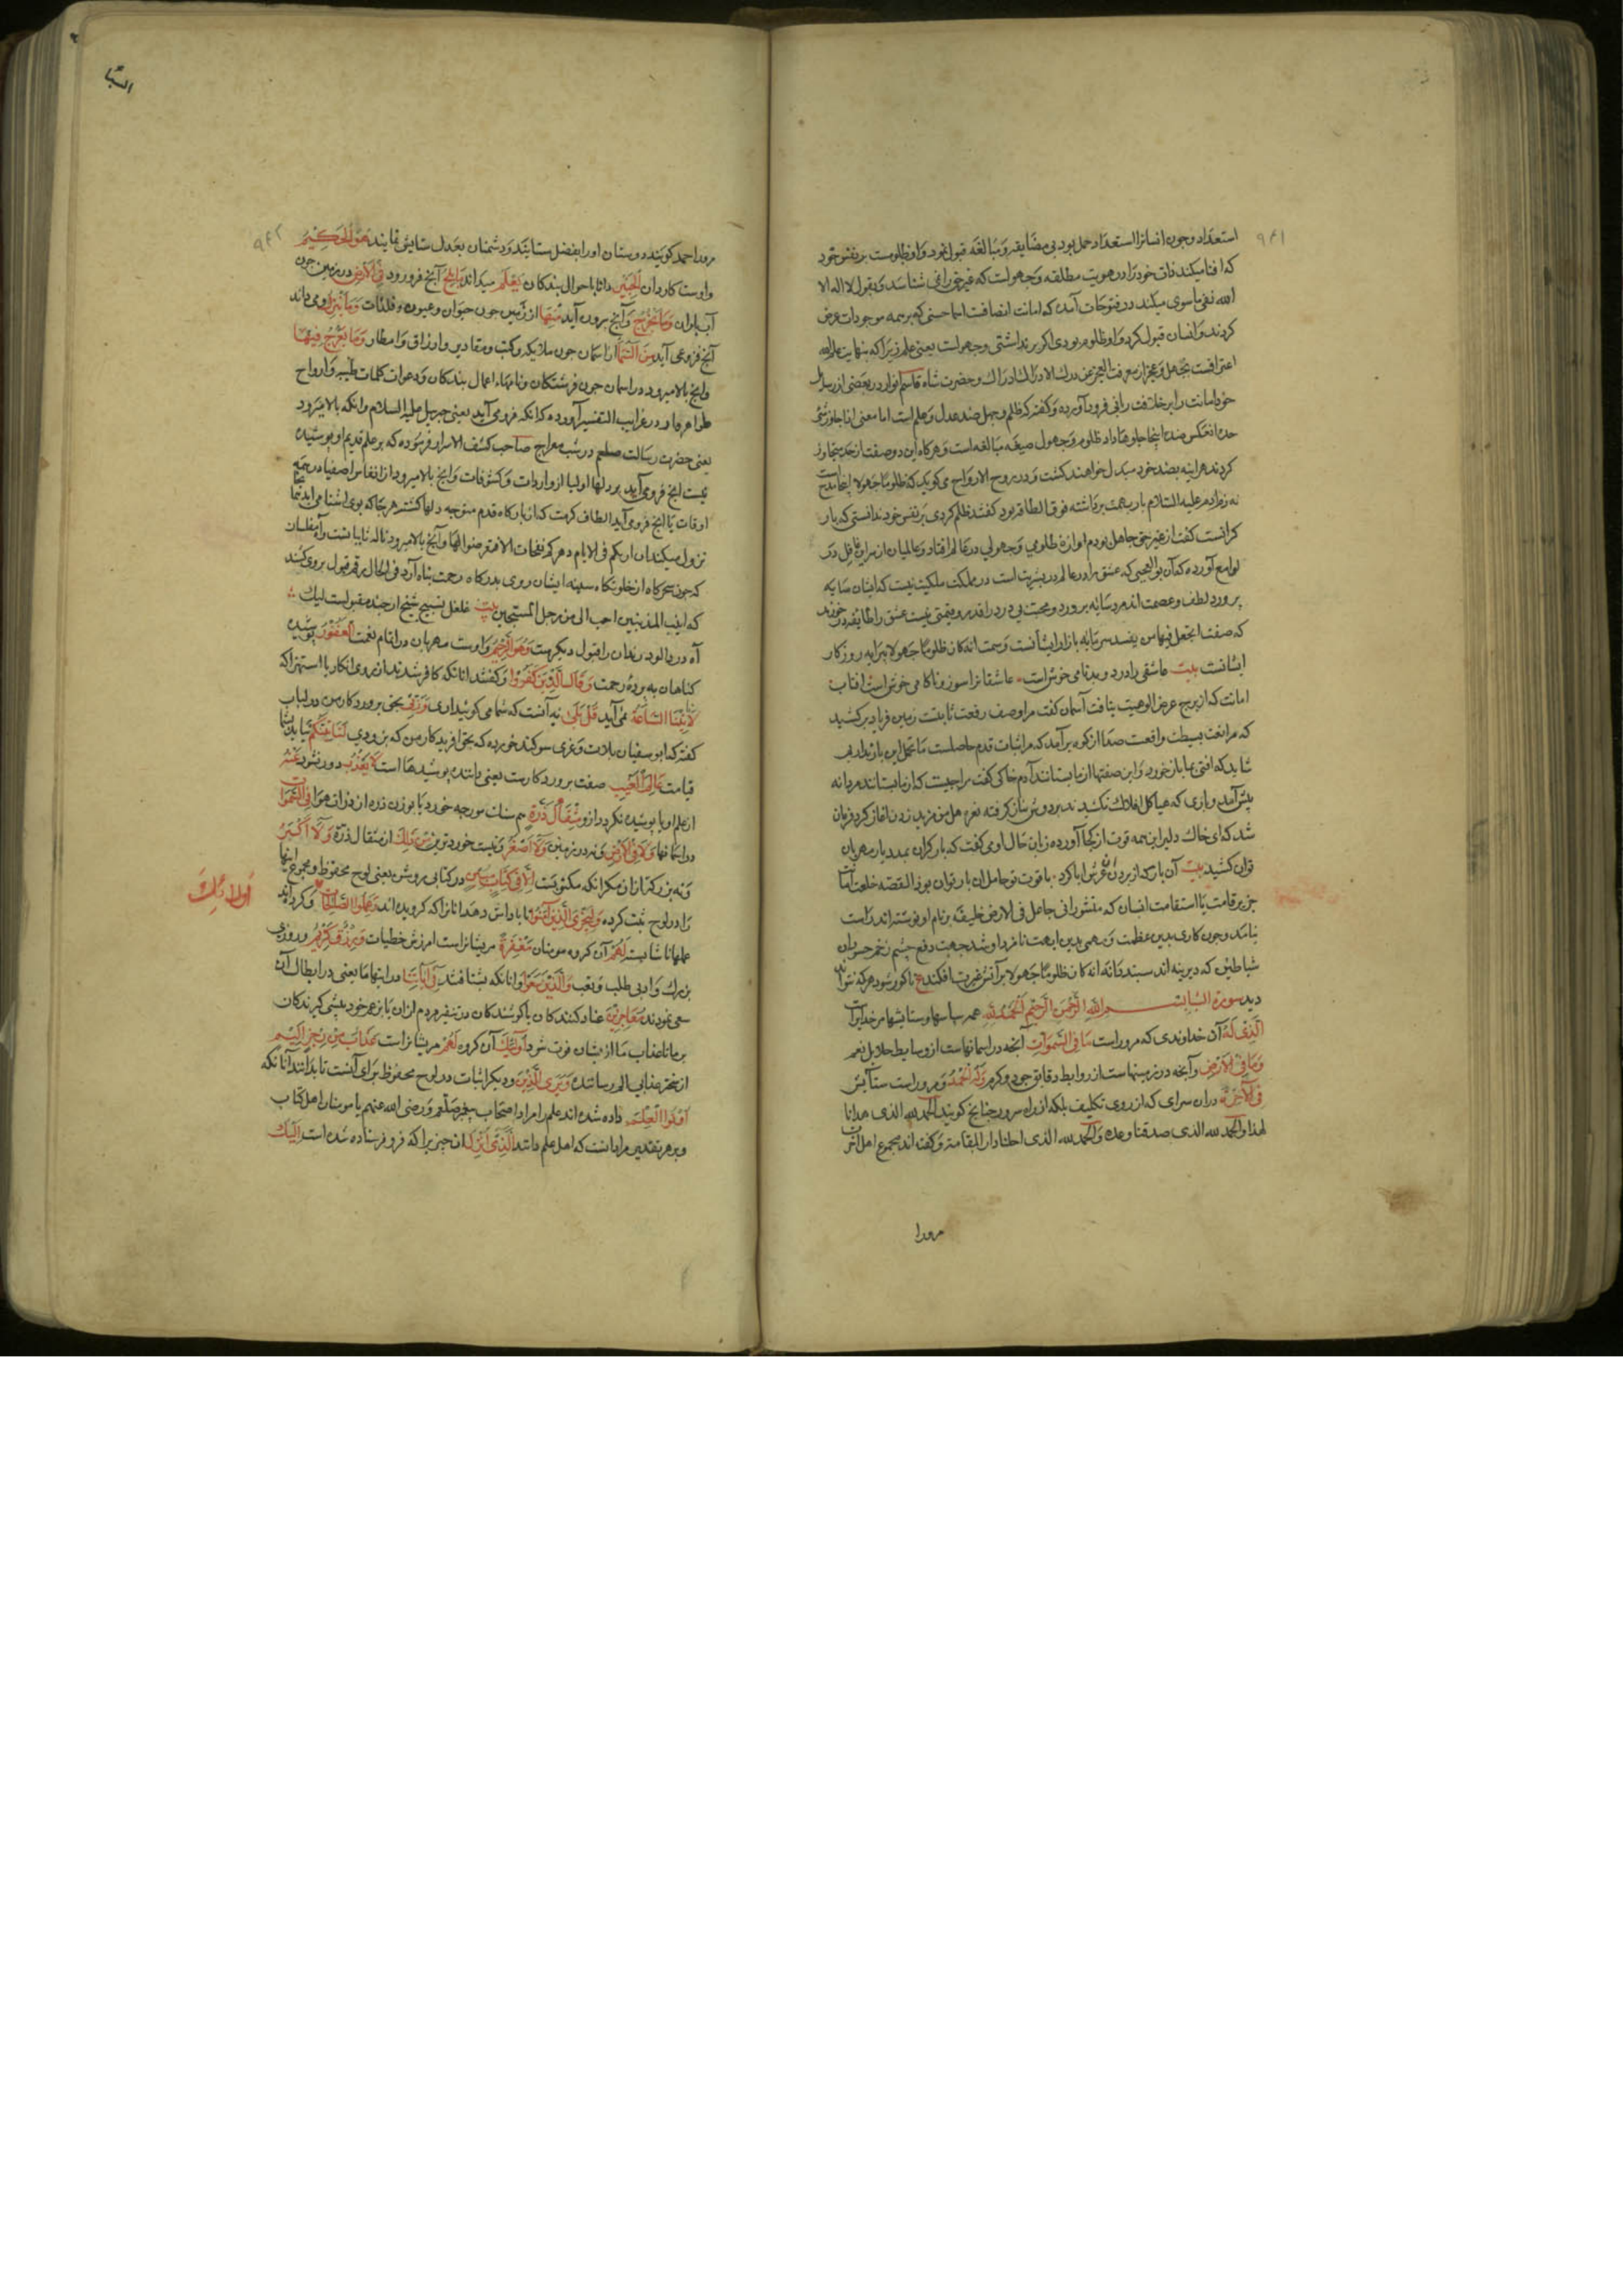 ۹۴۱
استعداد وچون انسانرا استعداد حمل بود بی مضایقه و مبالغه قبول نمود و او ظلومست بر نفس خود
که افنا میکند ذات خود را در هویت مطلقه و جهولست که غیر حق را نمی شناسد و بقول لا اله الا
الله نفی ماسوی میکند در فتوحات آمده که امانت اتصافت اسما حسنی که بر همه موجودات عرض
کردند و انسان قبول کرد و او ظلوم بودی اگر بر نداشتی و جهولست یعنی علم زیرا که نهایت علم بالله
اعترافست بجهل و عجز از معرفت العجز عن درک الادراک ادراک و حضرت شاه قاسم انوار در بعضی از رسایل
خود امانت را بر خلافت ربانی فرود آورده و گفته که ظلم و جهل ضد عدل و علم است اما معنی اذا جاوز شئ
حده انعکس ضده اینجا جلوها داد ظلوم و جهول صیغه مبالغه است و هرگاه این دو صفت از حد تجاوز
کردند هراینه بضد خود مبدل خواهند گشت و در روح الارواح می گوید که ظلوما جهولا اینجا مدح است
نه ذم آدم علیه السلام بار بهمت برداشته فوق الطاقه بود گفتند ظلم کردی بر نفس خود ندانستی که بار
گرانست گفت از غیر حق جاهل بودم اوازه ظلومی و جهولی در عالم افتاد و عالمیان از سر او غافل در
لوامع آورده که آن بوالعجبی که عشق را در عالم بشریت است در مملکت ملکیت نیست که ایشان سایه
پرورد لطف و عصمت اند و سایه پرورد و محبت بی درد را قدر و قیمتی نیست عشق را طایفه درخورند
که صفت اتجعل فیها من یفسد سرمایه بازار ایشانست و سمت انه کان ظلوما جهولا پیرایه روزگار
ایشانست بیت عاشقی را درد و بدنامی خوش است عاشقانرا سوز و ناکامی خوش است افتاب
امانت که از برج عرض الوهیت بتافت آسمان گفت مرا وصف رفعت ثابتست زمین فریاد بر کشید
که مرا نعت بسیطت واقعست صدا از کوه برآمد که مرا ثبات قدم حاصلست ما تحمل این بار نداریم
شاید که افتی بما باز خورد و این صفتها از ما بستانند آدم خاکی گفت مرا چیست که از ما بستانند مردانه
پیش آمد و باری که هیاکل افلاک نکشیدند بر دوش نیاز گرفته نعره هل من مزید زدن اغاز کرد فرمان
شد که ای خاک دلیر این همه قوت از کجا آورده زبان حال اوی گفت که بار گران بمدد یار مهربان
توان کشید بیت آن بار که از بردن آن عرش ابا کرد با قوت تو حامل ان بار توان بود القصه خلعت امانت
جز بر قامت با استقامت انسان که منشور انی جاعل فی الارض خلیفة بر نام او نوشته اند راست
نیامد و چون کاری بدین عظمت و مهمی بدین ابهت نامزد او شد جهت دفع چشم زخم حسودان
شیاطین که دیرینه اند سپند فانه انه کان ظلوما جهولا بر آتش غیرت افکند ع تا کور شود هر که نتواند
دید سورة السبا بسم الله الرحمن الرحیم الحمد لله همه سپاسها و ستایشها مر خدایراست
الذی له آن خداوندی که مرو راست ما فی السموات آنچه در اسمانهاست از وسایط جلایل نعم
وما فی الارض و آنچه در زمینهاست از روابط دقایق جود و کرم وله الحمد و مرو راست ستایش
فی الآخرة دران سرای که از روی تکلیف بلکه از راه سرور چنانچ گویند الحمد لله الذی هدانا
لهذا و الحمد لله الذی صدقنا وعده و الحمد لله الذی احلنا دار المقامة و گفته اند مجموع اهل آخرت
مرورا
السبا
۹۴۲
مرورا حمد گویند دوستان اورا بفضل ستایند و دشمنان بعدل ستایش نمایند وهو الحکیم
و اوست کاردان الخبیر دانا باحوال بندگان یعلم میداند ما یلج آنچ فرو رود فی الارض در زمین چون
آب باران وما یخرج و آنچ برون آید منها از زمین چون حیوان و عیون و فلذات وما ینزل و می داند
آنچ فرو می آید من السماء از اسمان چون ملایکه و کتب و مقادیر و ارزاق و امطار وما یعرج فیها
و انچ بالا میرود در اسمان چون فرشتگان و نامهاء اعمال بندگان و دعوات کلمات طیبه و ارواح
طواهره و در غرایب التفسیر آورده که انکه فرو می آید یعنی جبریل علیه السلام و انکه بالا میرود
یعنی حضرت رسالت صلعم در شب معراج صاحب کشف الاسرار فرموده که بر علم قدیم او پوشیده
نیست انچ فرو می آید بر دلها اولیا از واردات و کشوفات و انچ بالا میرود از انفاس اصفیا در همه
اوقات یا انچ فرو می آید الطاف کرمت که از بارگاه قدم متوجه دلها گشته هرجا که بوی اشنا می اید انجا
نزول میکند ان لربکم فی الایام دهرکم نفحات الا فتعرضوا لها و آنچ بالا میرود ناله تایبانست و آه مفلسان
که چون سحرگاه از خلوتگاه سینه ایشان روی بدرگاه رحمت پناه آرد فی الحال رقم قبول بروی کشند
که انین المذنبین احب الی من زجل المسبحین بیت غلغل تسبیح شیخ ارچند مقبولست لیک
آه دردالود رندان را قبول دیگرست وهو الرحیم و اوست مهربان در اتمام نعمت الغفور پوشیده
گناهان به پرده رحمت وقال الذین کفروا و گفتند انانکه کافر شدند از روی انکار با استهزا که
لا تأتینا الساعة نمی آید قل بلی نه آنست که شما می گوئید اری وربی بحق پروردگار من در لباب
گفته که ابوسفیان بلات و عزی سوگند خورده که بحق افریدگار من که بزودی لتأتینکم بیاید بشما
قیامت عالم الغیب صفت پروردگارست یعنی داننده پوشیدها است لا یعزب دور نشود عنه
از علم او یا پوشیده نگردد ازو مثقال ذرة هم سنک مورچه خورد یا بوزن ذره از ذرات هوا فی السموات
در اسمانها ولا فی الارض و نه در زمین ولا اصغر و نیست خوردتر من ذلک از مثقال ذرة ولا اکبر
و نه بزرگتر ازان مگر انکه مکتوبست الا فی کتاب مبین در کتابی روشن یعنی لوح محفوظ و مجموع اینها
را در لوح ثبت کرده لیجزی الذین آمنوا تا پاداش دهد انانرا که گرویده اند وعملوا الصالحات و کرده اند
اولائک
عملهاء شایسته لهم آن گروه مومنان مغفرة مریشانراست امرزش خطیات ورزق کریم و روزی
بزرک و ا وبی طلب و تعب والذین سعوا و انانکه بشتافتند فی آیاتنا در ایتها ما یعنی در ابطال آن
سعی نمودند معاجزین عناد کنندگان یا کوشندگان در تنفیر مردم ازان یا بزعم خود پیشی گیرندگان
بر ما تا عذاب ما از یشان فوت شود اولئک آن گروه لهم مریشانراست عذاب من رجز الیم
از سختر عذابی الم رسانند ویری الذین و دیگر اثبات در لوح محفوظ برای آنست تا بدانند آنانکه
اوتوا العلم داده شده اند علم را مراد اصحاب پیغمبر صلعم و رضی الله عنهم یا مومنان اهل کتاب
و بر هر تقدیر مراد آنست که اهل علم دانند الذی انزل ان چیز یرا که فرو فرستاده شده است الیک